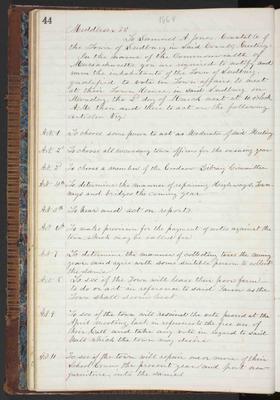 44
1868
Middlesex SS
To Samuel A Jones Constable of
the Town of Sudbury in said County Greeting
In the name of the Commonwealth of
Massachusetts you are required to notify and
warn the inhabitants of the Town of Sudbury
qualified to vote in Town affairs to meet
at their Town House in said Sudbury on
Monday the 2d day of March next at 10 o'clock
A.M. then and there to act on the following
articles Viz
Art 1 To choose some person to act as Moderator of said Meeting
Art 2d To choose all necessary town officers for the ensuing year
Art 3d To choose a member of the Goodnow Library Committee
Art 4th To determine the manner of repairing Highways, Town
ways and bridges the coming year
Art 5th To hear and act on reports
Art 6th To make provision for the payment of notes against the
town which may be called for
Art 7 To determine the manner of collecting taxes the coming
year and agree with some suitable person to collect
the same
Art 8 To see if the Town will lease their poor farm
to do or act in reference to said farm as the
Town shall deem best
Art 9 To see if the town will rescind the vote passed at the
April meeting last in reference to the free use of
their Hall and take any vote in regard to said
Hall which the town may desire
Art 10 To see if the town will repair one or more of their
School Houses the present year and put new
furniture into the same